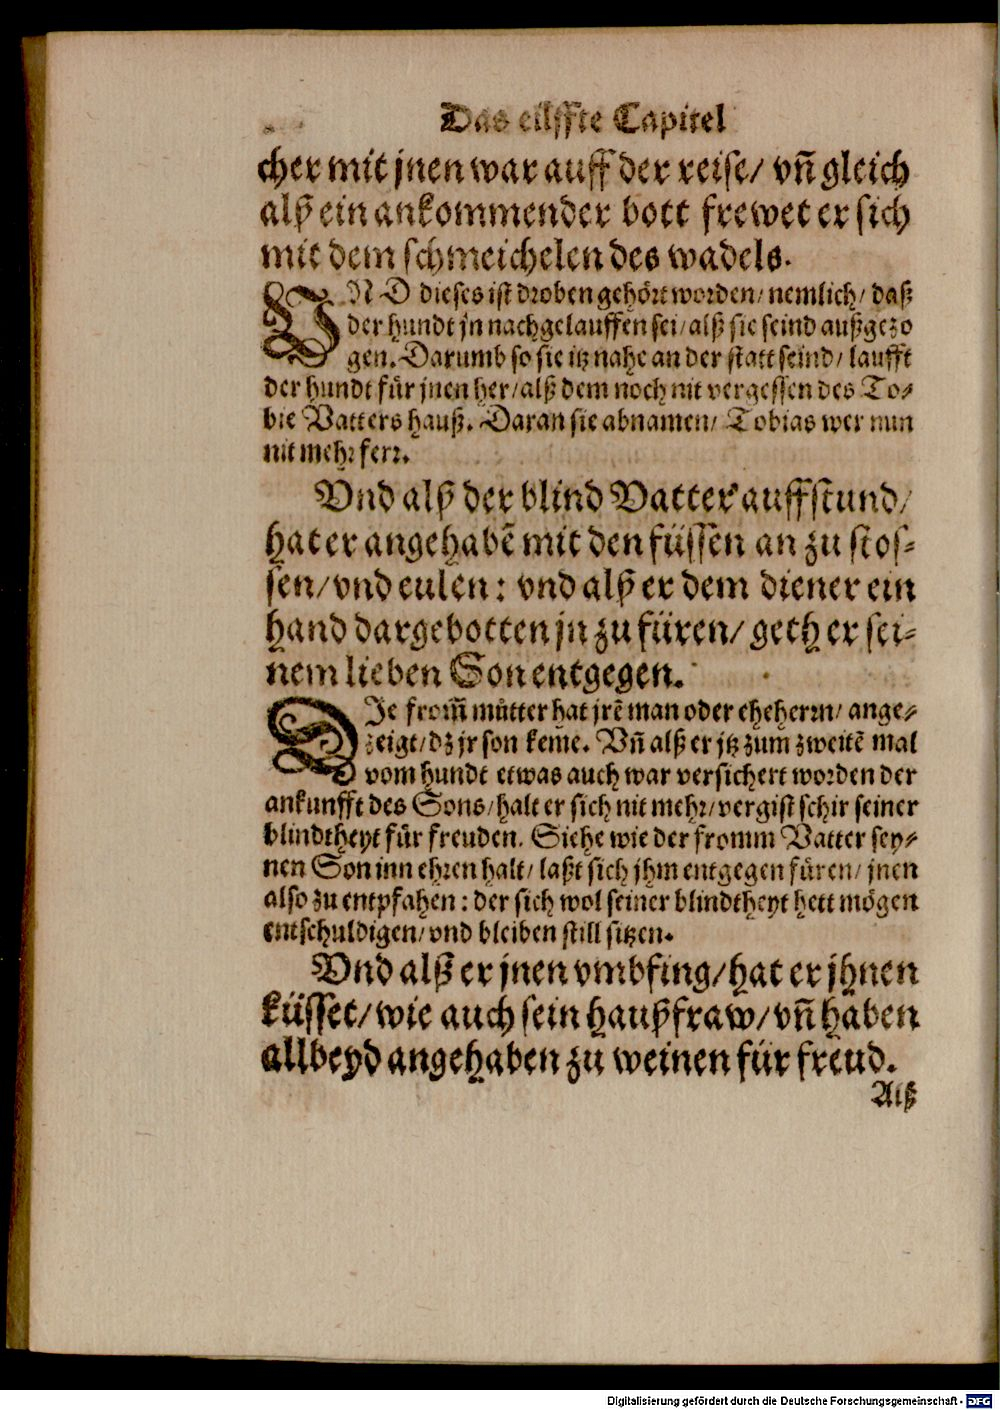 Das eilffte Capitel
cher mit jnen war auff der reise/ vñ gleich
alß ein ankommender bott frewet er sich
mit dem schmeichelen des wadels.
VND dieses ist droben gehört worden/ nemlich/ daß
der hundt jn nachgelauffen sei/ alß sie seind außgezo
gen. Darumb so sie itz nahe an der statt seind/ laufft
der hundt für jnen her/ alß dem noch nit vergessen des To-
bie Vatters hauß. Daran sie abnamen/ Tobias wer nun
nit mehr ferr.
Vnd alß der blind Vatter auffstund/
hat er angehabē mit den füssen an zu stos-
sen/ vnd eulen: vnd alß er dem diener ein
hand dargebotten jn zu füren/ geth er sei-
nem lieben Son entgegen.
DIe from̃ mütter hat jrē man oder eheherrn/ ange-
zeigt/ dz jr son keme. Vñ alß er jtz zum zweitē mal
vom hundt etwas auch war versichert worden der
ankunfft des Sons/ halt er sich nit mehr/ vergist schir seiner
blindtheyt für freuden. Siehe wie der fromm Vatter sey-
nen Son inn ehren halt/ laßt sich jhm entgegen füren/ jnen
also zu entpfahen: der sich wol seiner blindtheyt hett mögen
entschuldigen/ vnd bleiben still sitzen.
Vnd alß er jnen vmbfing/ hat er jhnen
küsset/ wie auch sein haußfraw/ vñ haben
allbeyd angehaben zu weinen für freud.
Alß
Digitalisierung gefördert durch die Deutsche Forschungsgemeinschaft - DFG